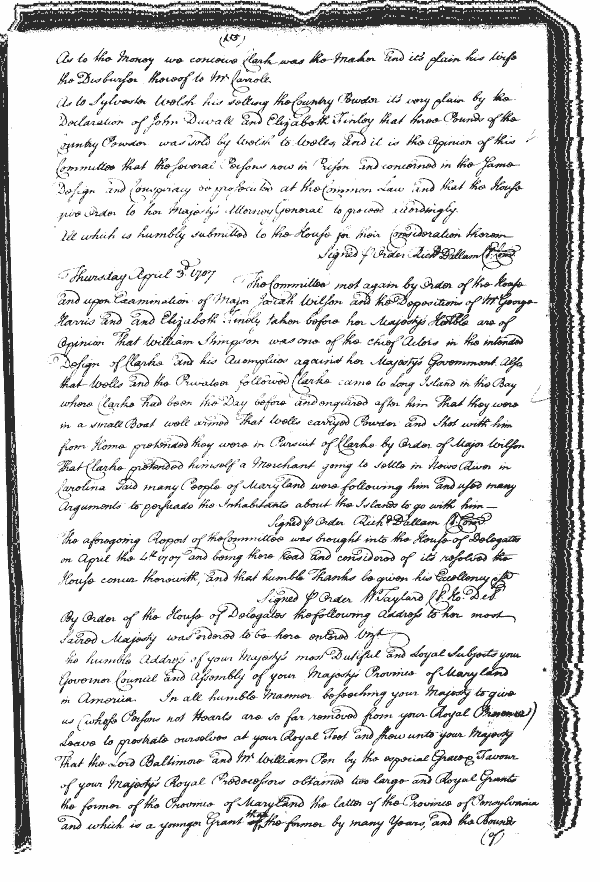 As to the Money we conceive Clark was the Maker and it's plain his Wife
the Disburser thereof to Mr Carroll.
As to Sylvester Welsh his selling the Country Powder it's very plain by the
Declaration of John Duvall and Elizabeth Finley that three Pounds of the
Country Powder was sold by Welsh to Wells, and it is the Opinion of this
Committee that the several Persons now in Prison and concerned in the same
Design and Conspiracy be prosecuted at the Common Law and that the House
give Order to her Majesty's Attorney General to proceed accordingly.
All which is humbly submitted to the House for their Consideration thereon
Signed p Order Richd Dallam Cl Com
Thursday April 3d 1707
The Committee met again by Order of the House
and upon Examination of Major Josiah Wilson and the Depositions of Mr George
Harris and and Elizabeth Finely taken before her Majesty's Honble are of
Opinion That William Simpson was one of the chief Actors in the intended
Design of Clarke and his Accomplices against her Majesty's Government. Also
that Wells and the Privateer followed Clarke came to Long Island in the Bay
where Clarke had been the Day before and enquired after him That they were
in a small Boat well armed That Wells carryed Powder and Shot with him
from Home pretended they were in Pursuit of Clarke by Order of Major Wilson
That Clarke pretended himself a Merchant going to settle in News River in
Carolina said many People of Maryland were following him and used many
Arguments to persuade the Inhabitants about the Islands to go with him—
Signed p Order Richd Dallam Cl Com
The aforegoing Report of the Committee was brought into the House of Delegates
on April the 4th 1707 and being there Read and considered of it's resolved the
House concur therewith, and that humble Thanks be given his Excellency
Signed p Order W Taylard Cl Ho. Del
By Order of the House of Delegates the following Address to her most
Sacred Majesty was ordered to be here entered Vizt
The humble Address of your Majesty's most Dutiful and Loyal Subjects your
Governor Council and Assembly of your Majesty's Province of Maryland
in America. In all humble Manner beseeching your Majesty to give
us (whose Persons not Hearts are so far removed from your Royal Presence)
Leave to prostrate ourselves at your Royal Feet and shew unto your Majesty
That the Lord Baltimore and Mr William Pen by the especial Grace & Favour
of your Majesty's Royal Predecessors obtained two large and Royal Grants
the former of the Province of Maryland the latter of the Province of Pensylvania
and which is a younger Grant than the former by many Years, and the Bounds
(of)